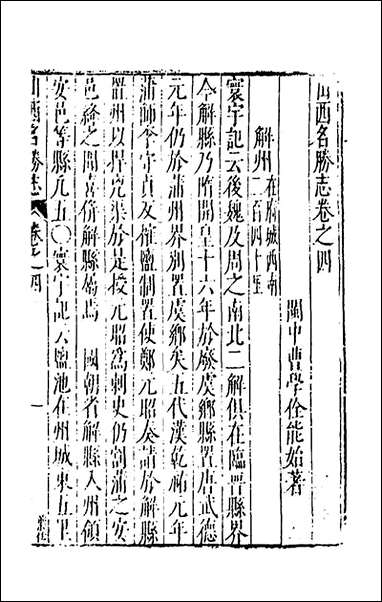 山西名勝志卷之四
閩中曹學佺能始著
解州在府城西南
二百四十里
寰宇記云後魏及周之南北二解俱在臨晉縣界
今解縣乃隋開皇十六年於廢虞鄉縣置唐武德
元年仍於蒲州界別置虞鄉矣五代漢乾祐元年
蒲帥李守貞反權鹽制置使鄭元昭奏請於解縣
置州以捍兇渠於是授元昭為刺史仍割蒲之安
邑絳之聞喜併解縣屬焉 國朝省解縣入州領
安邑等縣凡五○寰宇記云鹽池在州城東五里
山西名勝志 卷之四 一